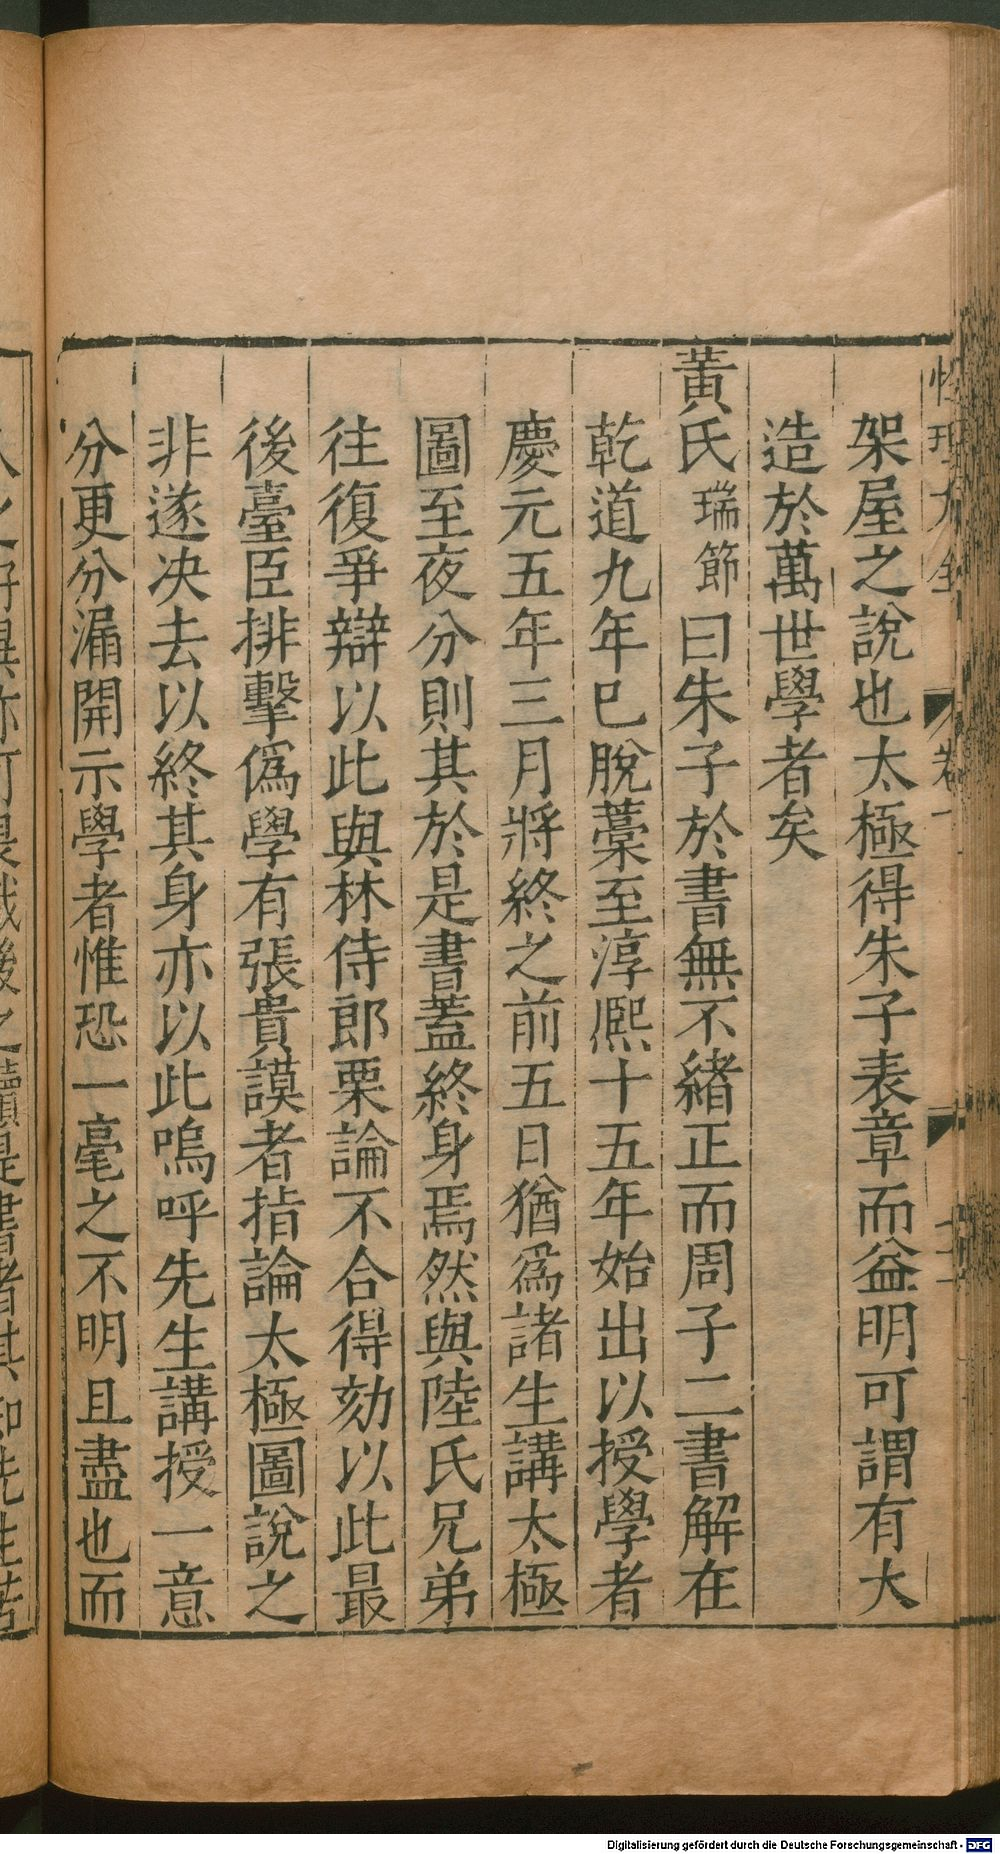 性理大全
卷一
架屋之說也太極得朱子表章而益明可謂有大
造於萬世學者矣
黃氏瑞節曰朱子於書無不緒正而周子二書解在
乾道九年已脫藁至淳熙十五年始出以授學者
慶元五年三月將終之前五日猶爲諸生講太極
圖至夜分則其於是書蓋終身焉然與陸氏兄弟
往復爭辯以此與林侍郎栗論不合得劾以此最
後臺臣排擊僞學有張貴謨者指論太極圖說之
非遂决去以終其身亦以此嗚呼先生講授一意
分更分漏開示學者惟恐一毫之不明且盡也而
Digitalisierung gefördert durch die Deutsche Forschungsgemeinschaft - DFG